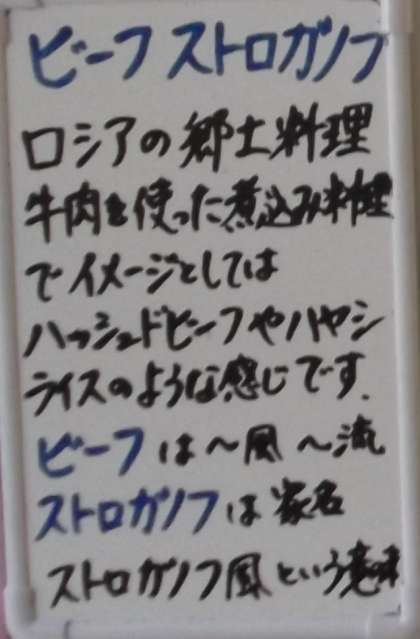 ビーフストロガノフ
ロシアの郷土料理
牛肉を使った煮込み料理
でイメージとしては
ハッシュドビーフやハヤシ
ライスのような感じです.
ビーフは〜風 〜流
ストロガノフは家名
ストロガノフ風という意味